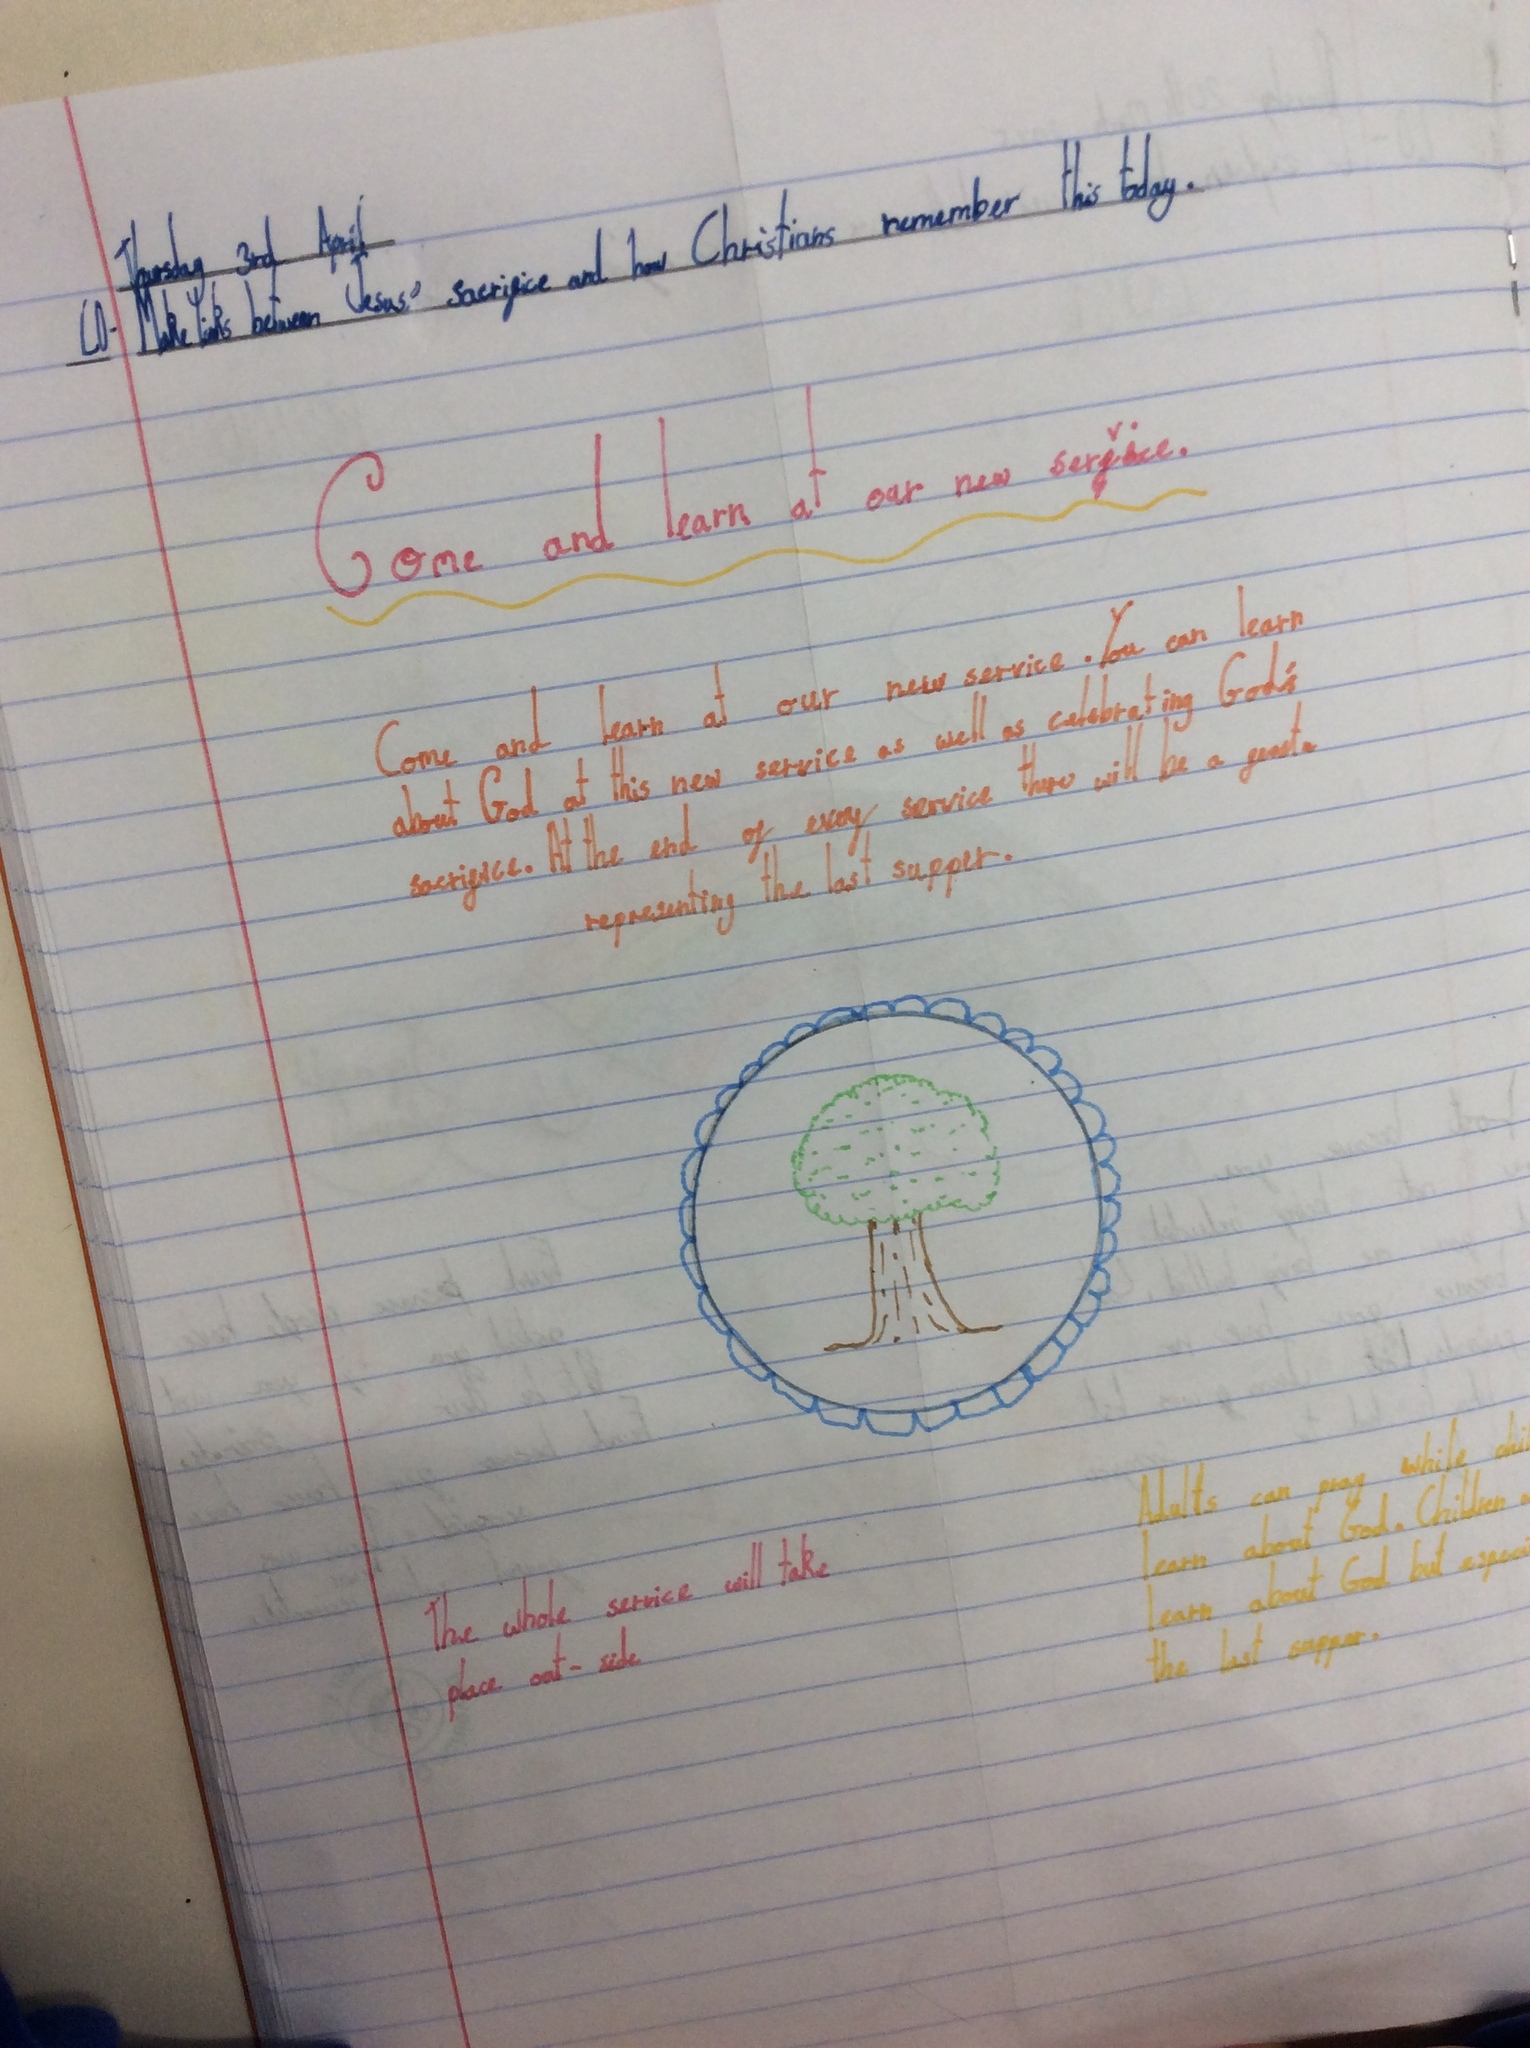 Thursday 3rd April
LO- Make links between Jesus' sacrifice and how Christians remember this today.
Come and learn at our new service.
Come and learn at our new service. You can learn
about God at this new service as well as celebrating God's
sacrifice. At the end of every service there will be a feast
representing the last supper.
The whole service will take
place out-side
Adults can pray while
learn about God. Children
learn about God but
the last supper.